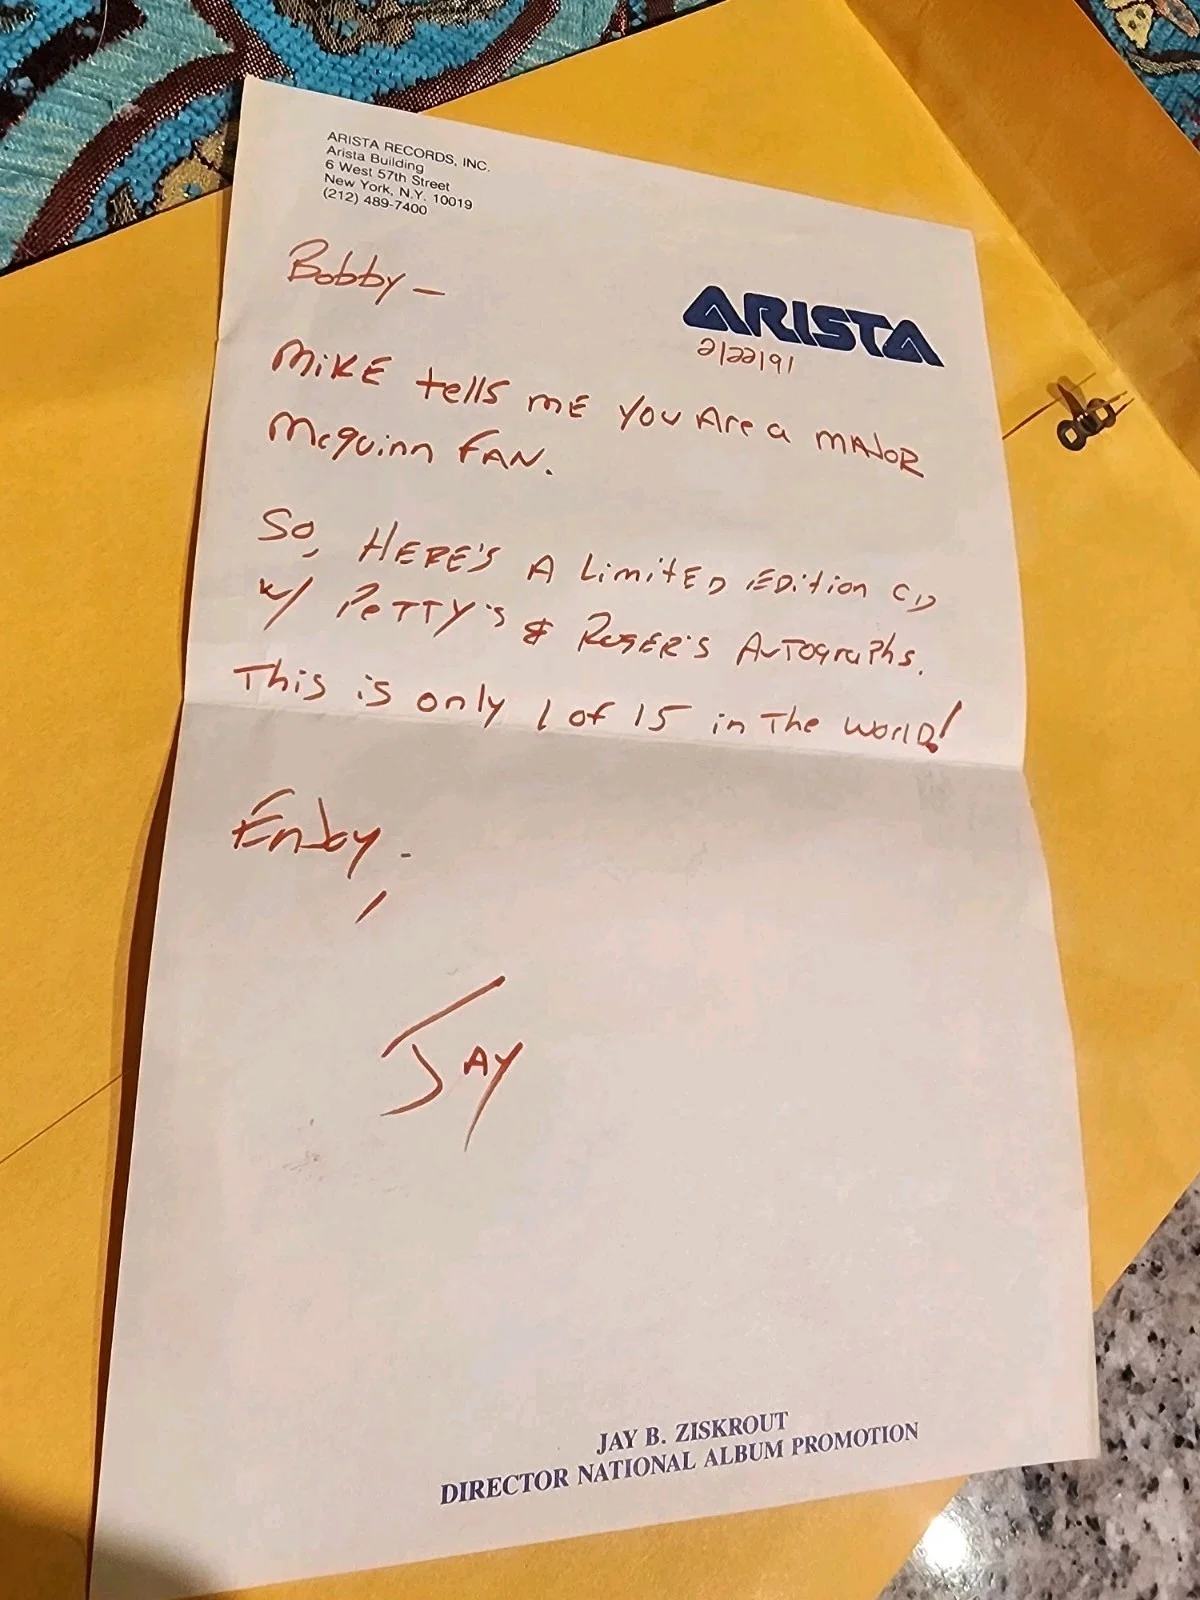 ARISTA RECORDS, INC.
Arista Building
6 West 57th Street
New York, N.Y. 10019
(212) 489-7400
ARISTA
2/22/91
Bobby –
MIKE tells ME YOU Are a MAJOR
McGuinn FAN.
So, HERE'S A Limited Edition CD
w/ PETTY'S & ROGER'S AUTOgraphs.
This is only 1 of 15 in The World!
Enjoy,
JAY
JAY B. ZISKROUT
DIRECTOR NATIONAL ALBUM PROMOTION